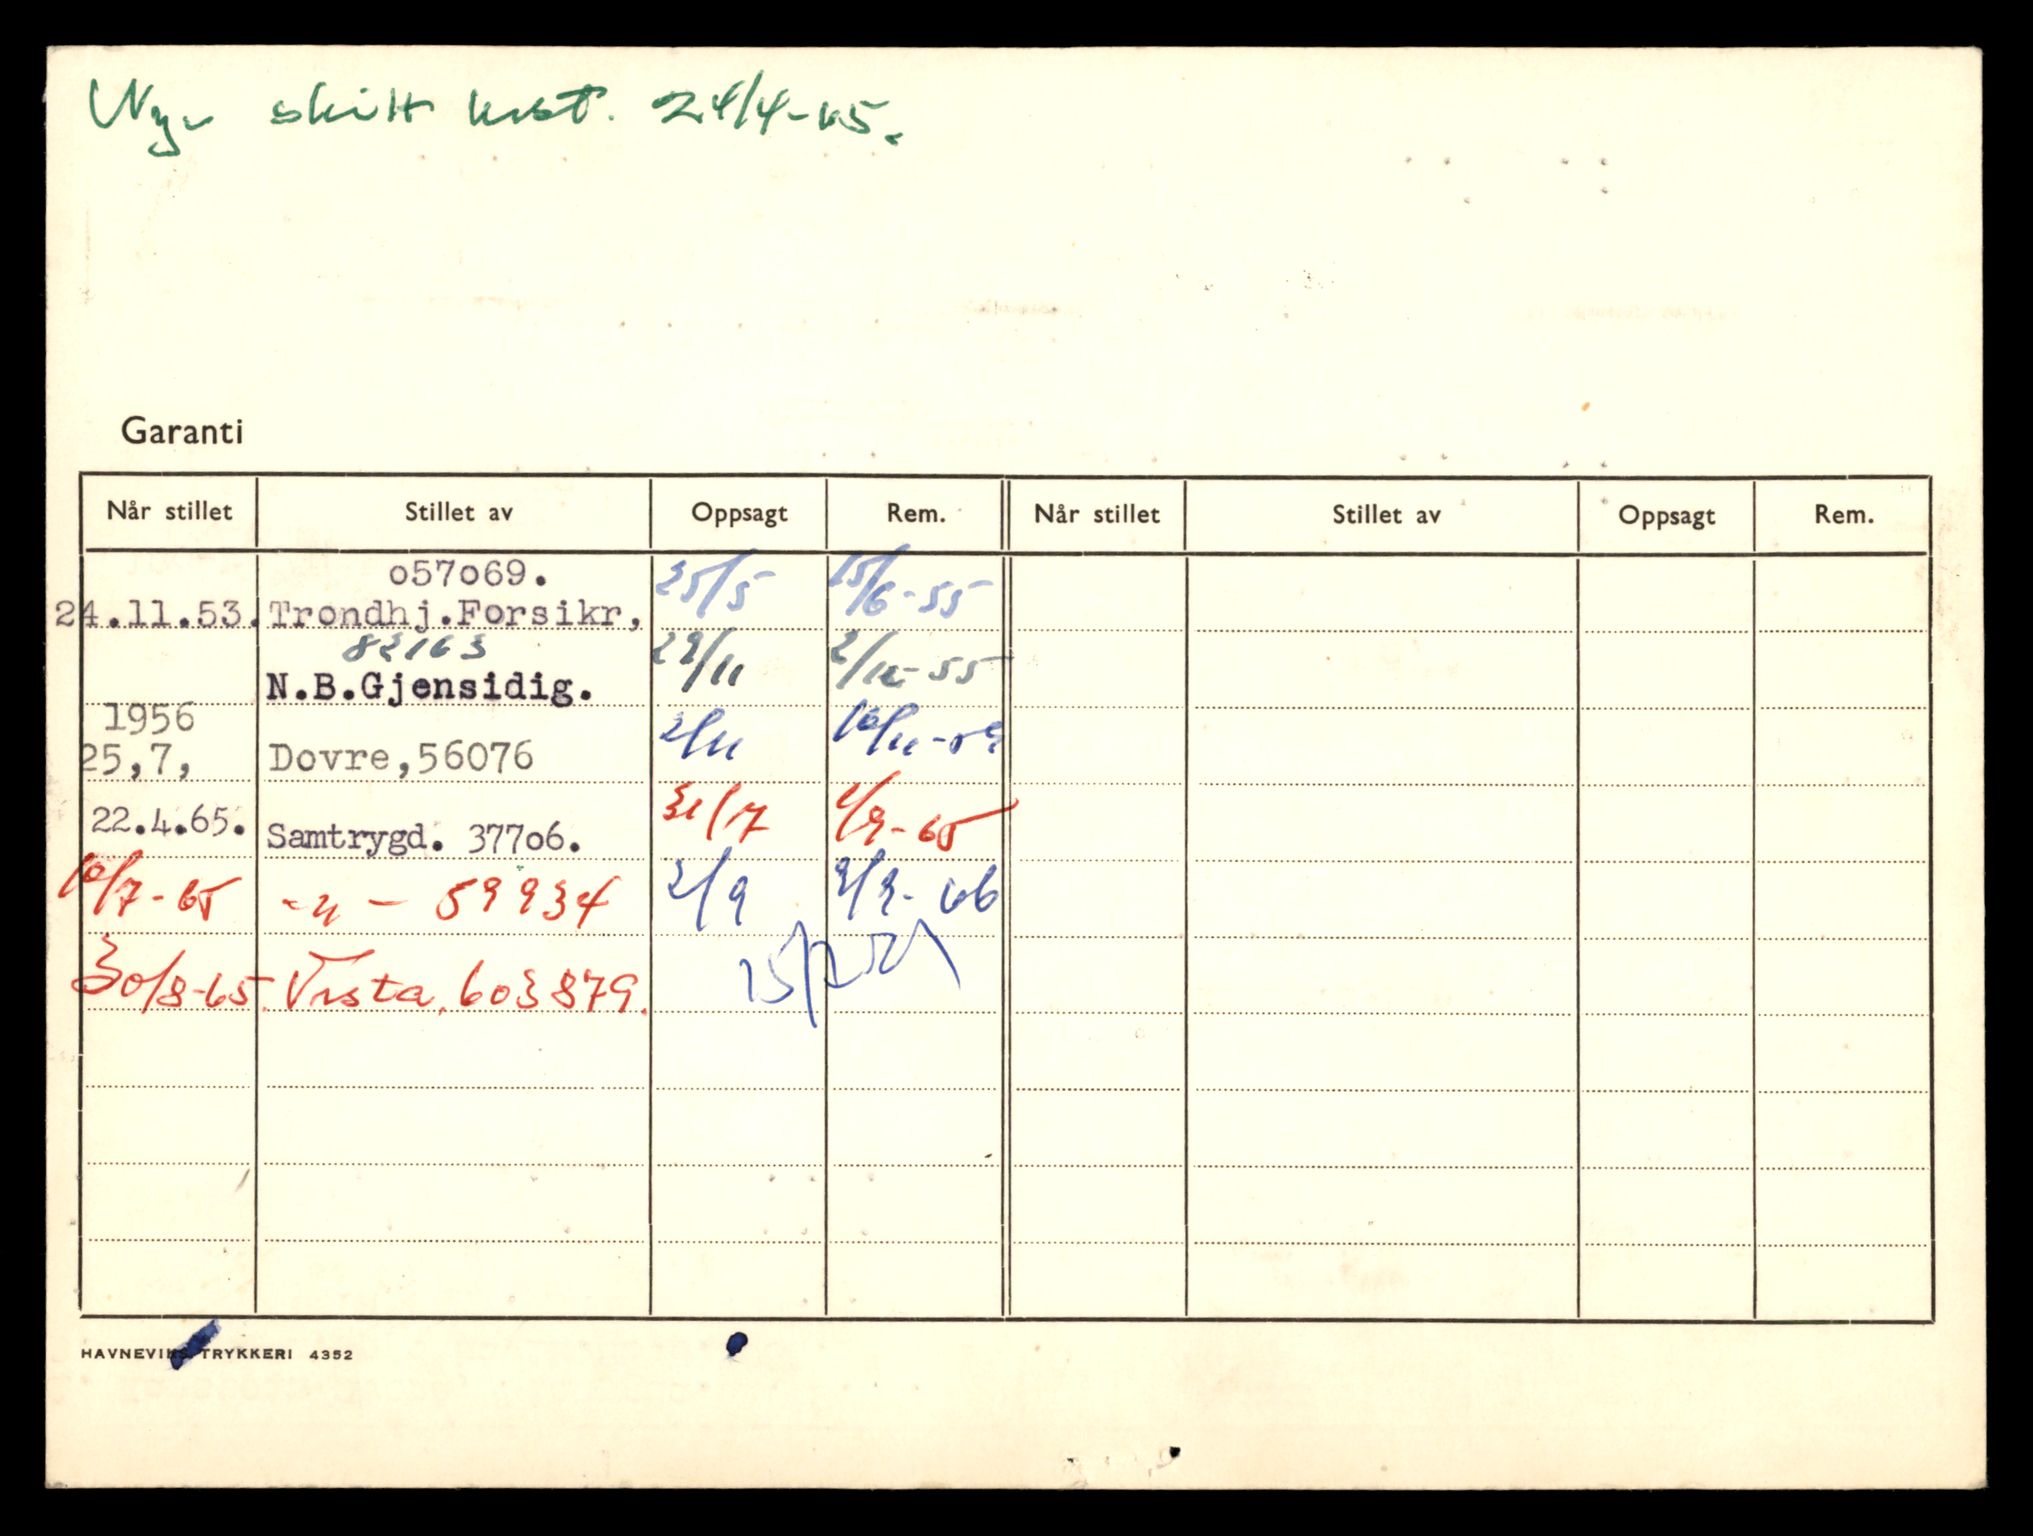 Nye skilt best. 24/4-65.
Garanti
Når stillet Stillet av Oppsagt Rem. Når stillet Stillet av Oppsagt Rem.
057069. 25/5 15/6-55
24.11.53. Trondhj.Forsikr,
82163 29/11 2/12-55
N.B.Gjensidig.
1956 2/11 10/11-59
25,7, Dovre,56076
22.4.65. Samtrygd. 37706. 31/7 2/9-65
10/7-65 -"- 59934 2/9 9/9-66
30/8-65. Vesta, 603879.
HAVNEVIKS TRYKKERI 4352